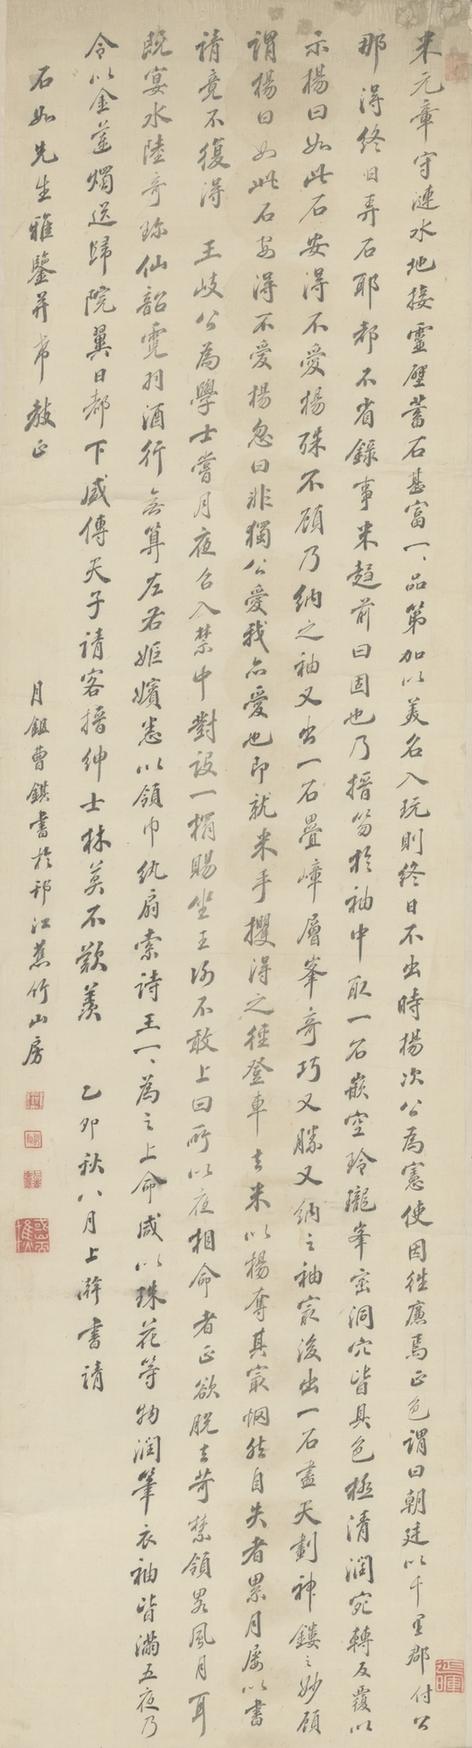 米元章守漣水地接靈壁蓄石甚富一一品第加以美名入玩則終日不出時楊次公為憲使因往廉焉正色謂曰朝廷以千里郡付公
那得終日弄石耶都不省錄事米趨前曰固也乃搢笏於袖中取一石嵌空玲瓏峯巒洞穴皆具色極清潤宛轉反覆以
示楊曰如此石安得不愛楊殊不顧乃納之袖又出一石疊嶂層峯奇巧又勝又納之袖最後出一石盡天劃神鏤之妙顧
謂楊曰如此石安得不愛楊忽曰非獨公愛我亦愛也即就米手攫得之徑登車去米以楊奪其最惘然自失者累月屢以書
請竟不復得 王岐公為學士嘗月夜召入禁中對設一榻賜坐王謝不敢上曰所以夜相命者正欲脫去苛禁領畧風月耳
既宴水陸奇珍仙韶霓羽酒行無算左右姬嬪悉以領巾紈扇索詩王一一為之上命咸以珠花等物潤筆衣袖皆滿五夜乃
令以金蓮燭送歸院翼日都下盛傳天子請客搢紳士林莫不歎羨 乙卯秋八月上澣書請
石如先生雅鑒并希教正
月鉏曹錤書於邗江蕉竹山房